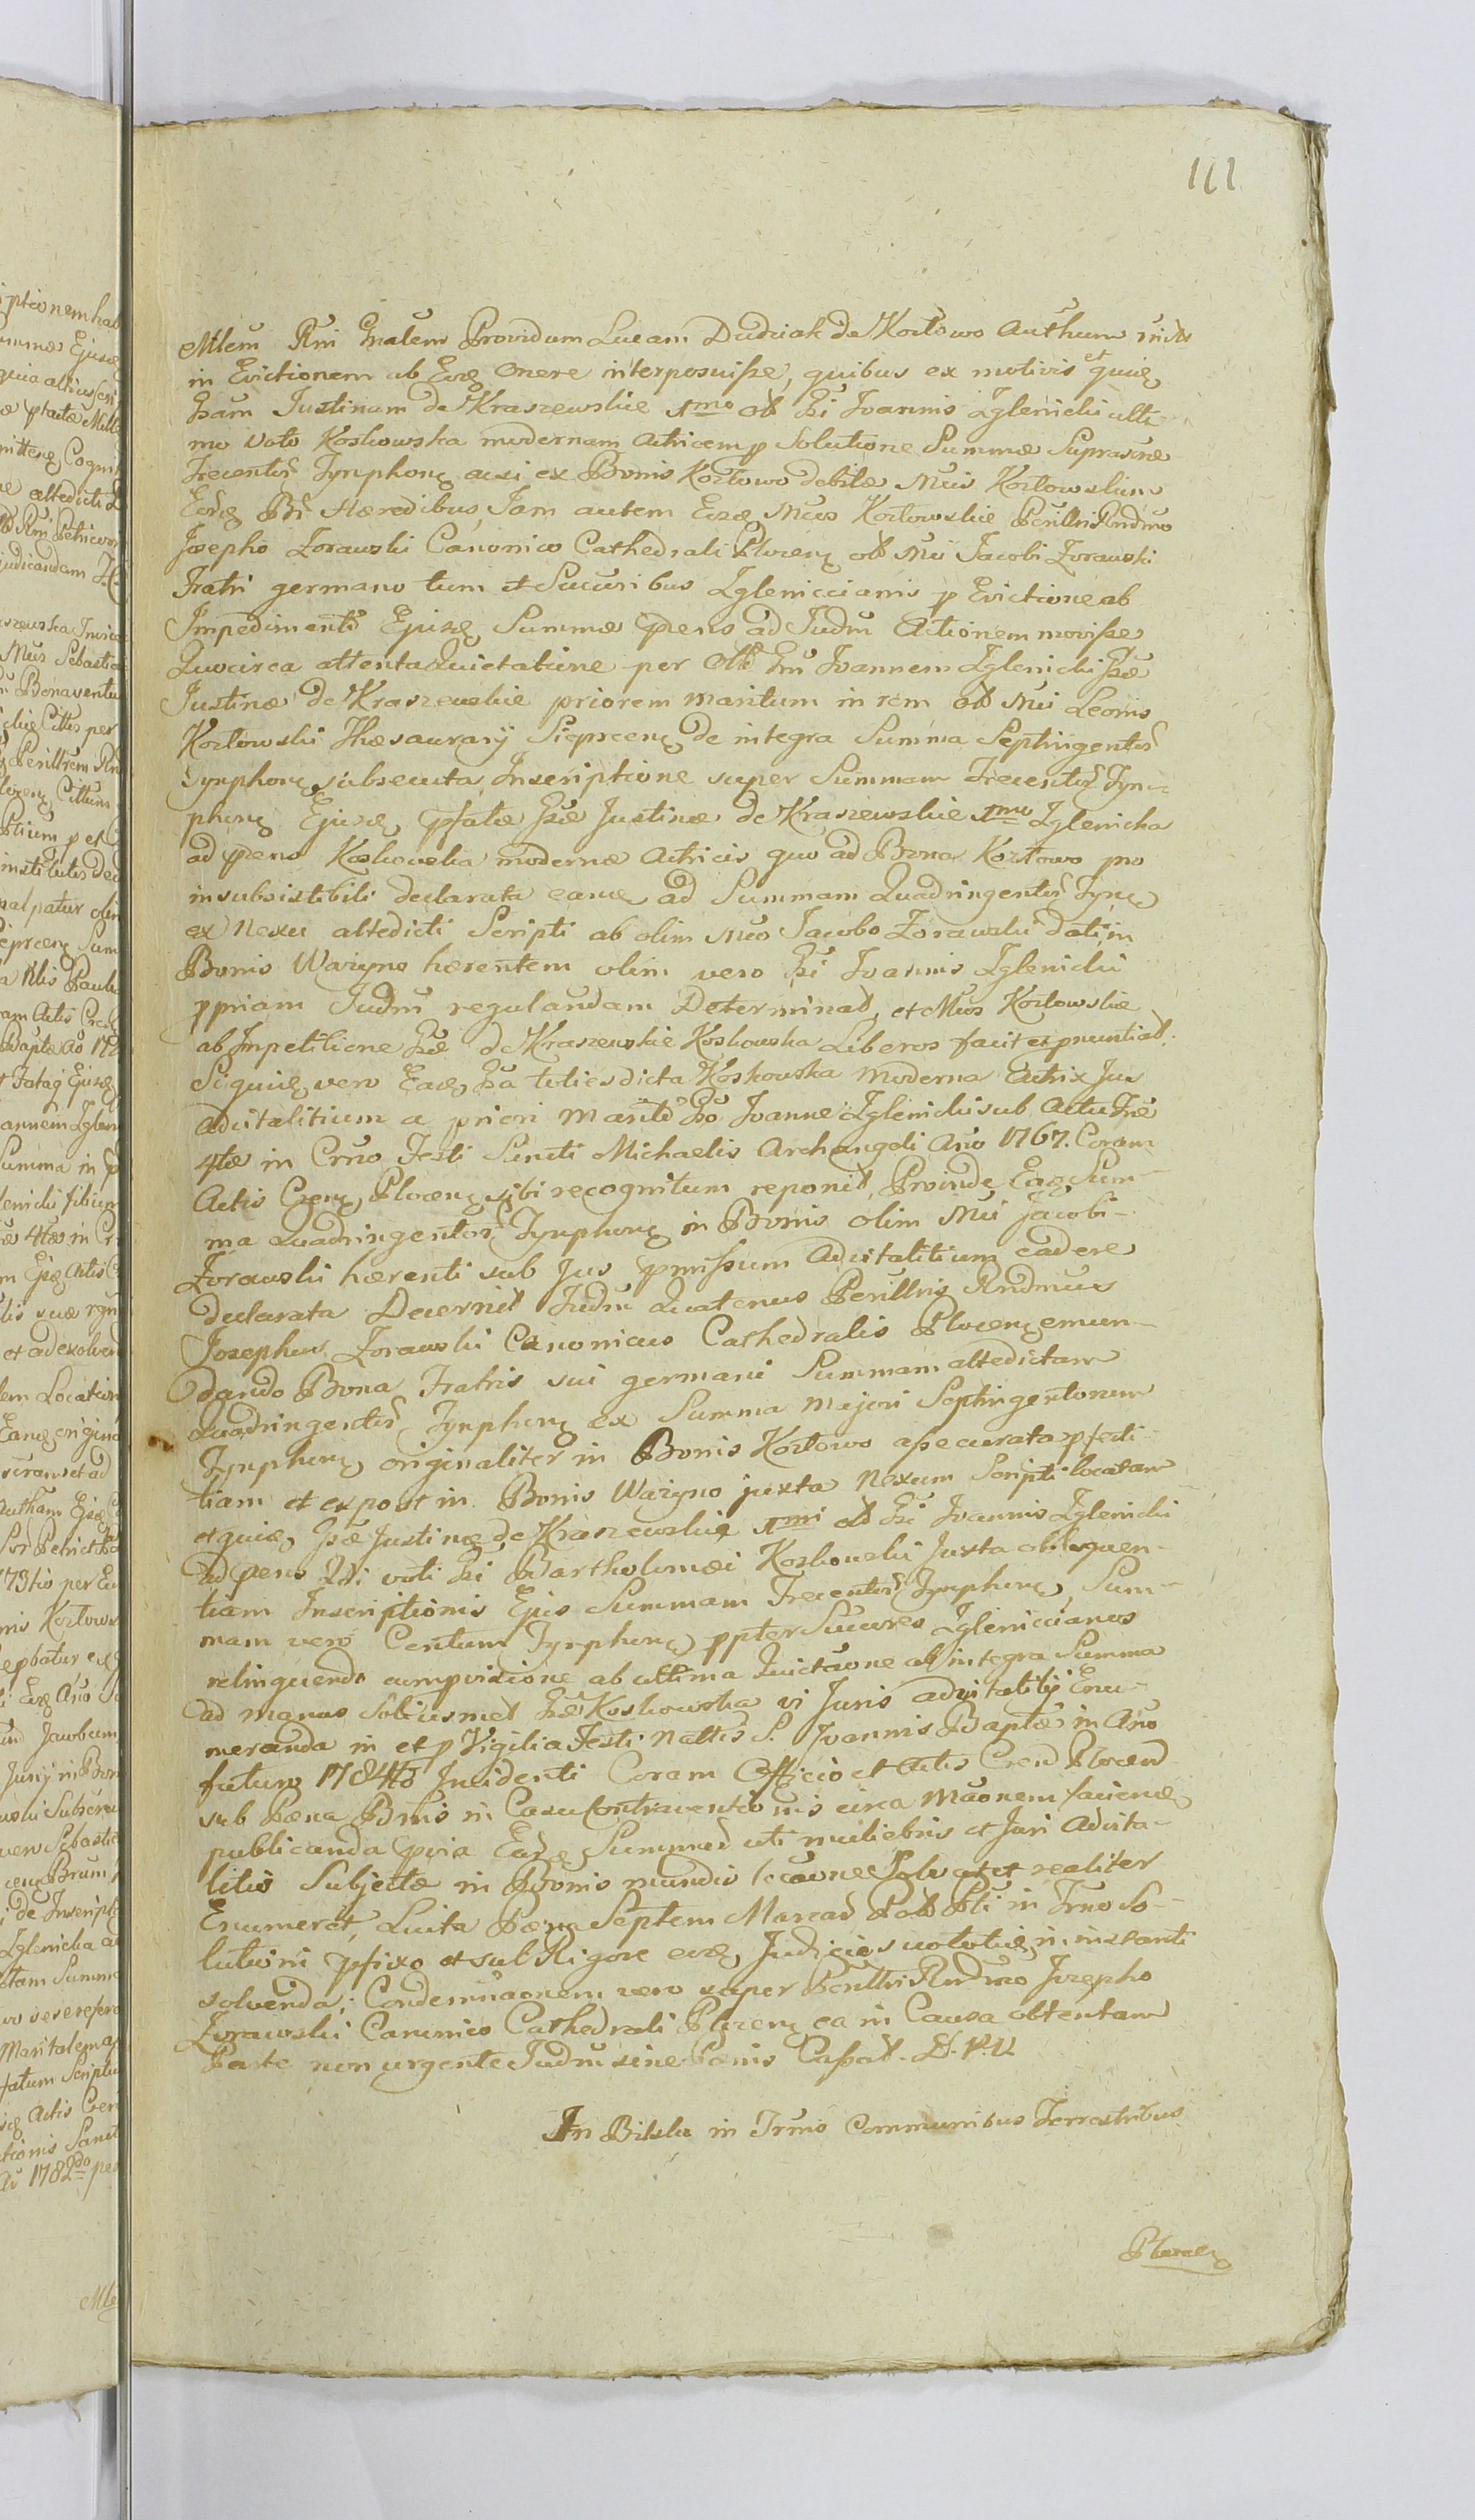 111
Mlem Rni Gnalem Providum Lucam Dudziak de Kozłowo Authum
in Evictionem ab Eoq onere interposuisse, quibus ex motivis et quiq
Gsam Justinam de Kraszewskie 1mo olt Gsi Joannis Zglenicki ulti
mo Voto Koskowska modernam Actricem p Solutione Summæ Suprascræ
Trecentor Tynphonq acsi ex Bonis Kozłowo debitæ Mcis Kozłowskim
Hæredibus, Jam autem Mcos Kozłowskie Perillri Rndmo
Josepho Zorawski Canonico Cathedrali Plocenq olt Mci Jacobi Zorawski
Fratri germano tum et Succribus Zgleniccianis p Evictione ab
Impedimento Ejusq Summæ ad Judm Actionem movisse
Quocirca attenta Quietatione per Olt Gm Joannem Zglenicki Gsæ
Justinæ de Kraszewskie priorem maritum in rem olt Mci Leonis
Kozłowski Thesaurarij Sieprcenq de integra Summa Septingentor
Tynphonq subsecuta, Inscriptione super Summam Trecentor Tyn-
phonq Ejusq pfatæ Gsæ Justinæ de Kraszewskie 1mo Zglenicka
ad pens Koskowska modernæ Actricis quo ad Bona Kozłowo pro
insubsistibili declarata eamq ad Summam Quadringentor Tynq
ex Nexu altedicti Scripti ab olim Mco Jacobo Zorawski dati, in
Bonis Wazyno hærentem olim vero Gsi Joannis Zglenicki
ppriam Judm regulandam Determinat, et Mcos Kozłowskie
ab Impetitione Gsæ de Kraszewskie Koskowska Liberos facit et pnuntiat.
Siquiq vero Eaq Gsa totiesdicta Koskowska Moderna Actrix Jus
Advitalitium a priori Marito Gso Joanne Zglenicki sub Actu Fræ
4tæ in Crno Festi Sancti Michaelis Archangeli Ano 1767. Coram
Actis Crenq Plocenq sibi recognitum reponit, Proinde Eaq Sum-
ma Quadringentor Tynphonq in Bonis olim Mci Jacobi
Zorawski hærenti sub Jus pmissum Advitalitium cadere
declarata Decernit Judm Quatenus Perillris Rndmus
Josephus Zorawski Canonicus Cathedralis Plocenq emun-
dando Bona Fratris sui germani Summam altedictam
Quadringentor Tynphonq ex Summa Majori Septingentorum
Tynphonq originaliter in Bonis Kozłowo assecurata
tiam et expost in Bonis Wazyno juxta Nexum Scripti locatam
etquiq Gsæ Justinæ de Kraszewskie 1mi olt Gsi Joannis Zglenicki
ad pens 2di voti Gsi Bartholomæi Koskowski Juxta obloquen-
tiam Inscriptionis Ejus Summam Trecentor Tynphonq, Sum-
mam vero Centum Tynphonq ppter Succres Zgleniccianos
relinquendo cum provisione ab ultima Quictaone ab integra Summa
ad manus Solius met Gsæ Koskowska vi Juris advitalitij Enu-
meranda in et p Vigilia Festi Nattis S. Joannis Baptæ in Ano
futuro 1784to Incidenti Coram Officio et Actis Crend Plocend
sub Pæna Bnis in Casu Contraventionis circa Maonem faciend
publicanda quia Eadq Summas uti muliebris et Juri Advita-
litio Subjectæ in Bonis mundis locaone realiter
Enumeret, Luita Pæna Septem Marcar in Trno So-
lutioni pfixo et sub Rigore eodq Judicio in instanti
solvenda; Condemnaonem vero super Perillri Rndmo Josepho
Zorawski Canonico Cathedrali Plocenq ea in Causa obtentam
Parte non urgente Judm sine Pænis Cassat.
In Bilsku in Trmis Communibus Terrestribus
Plocenq